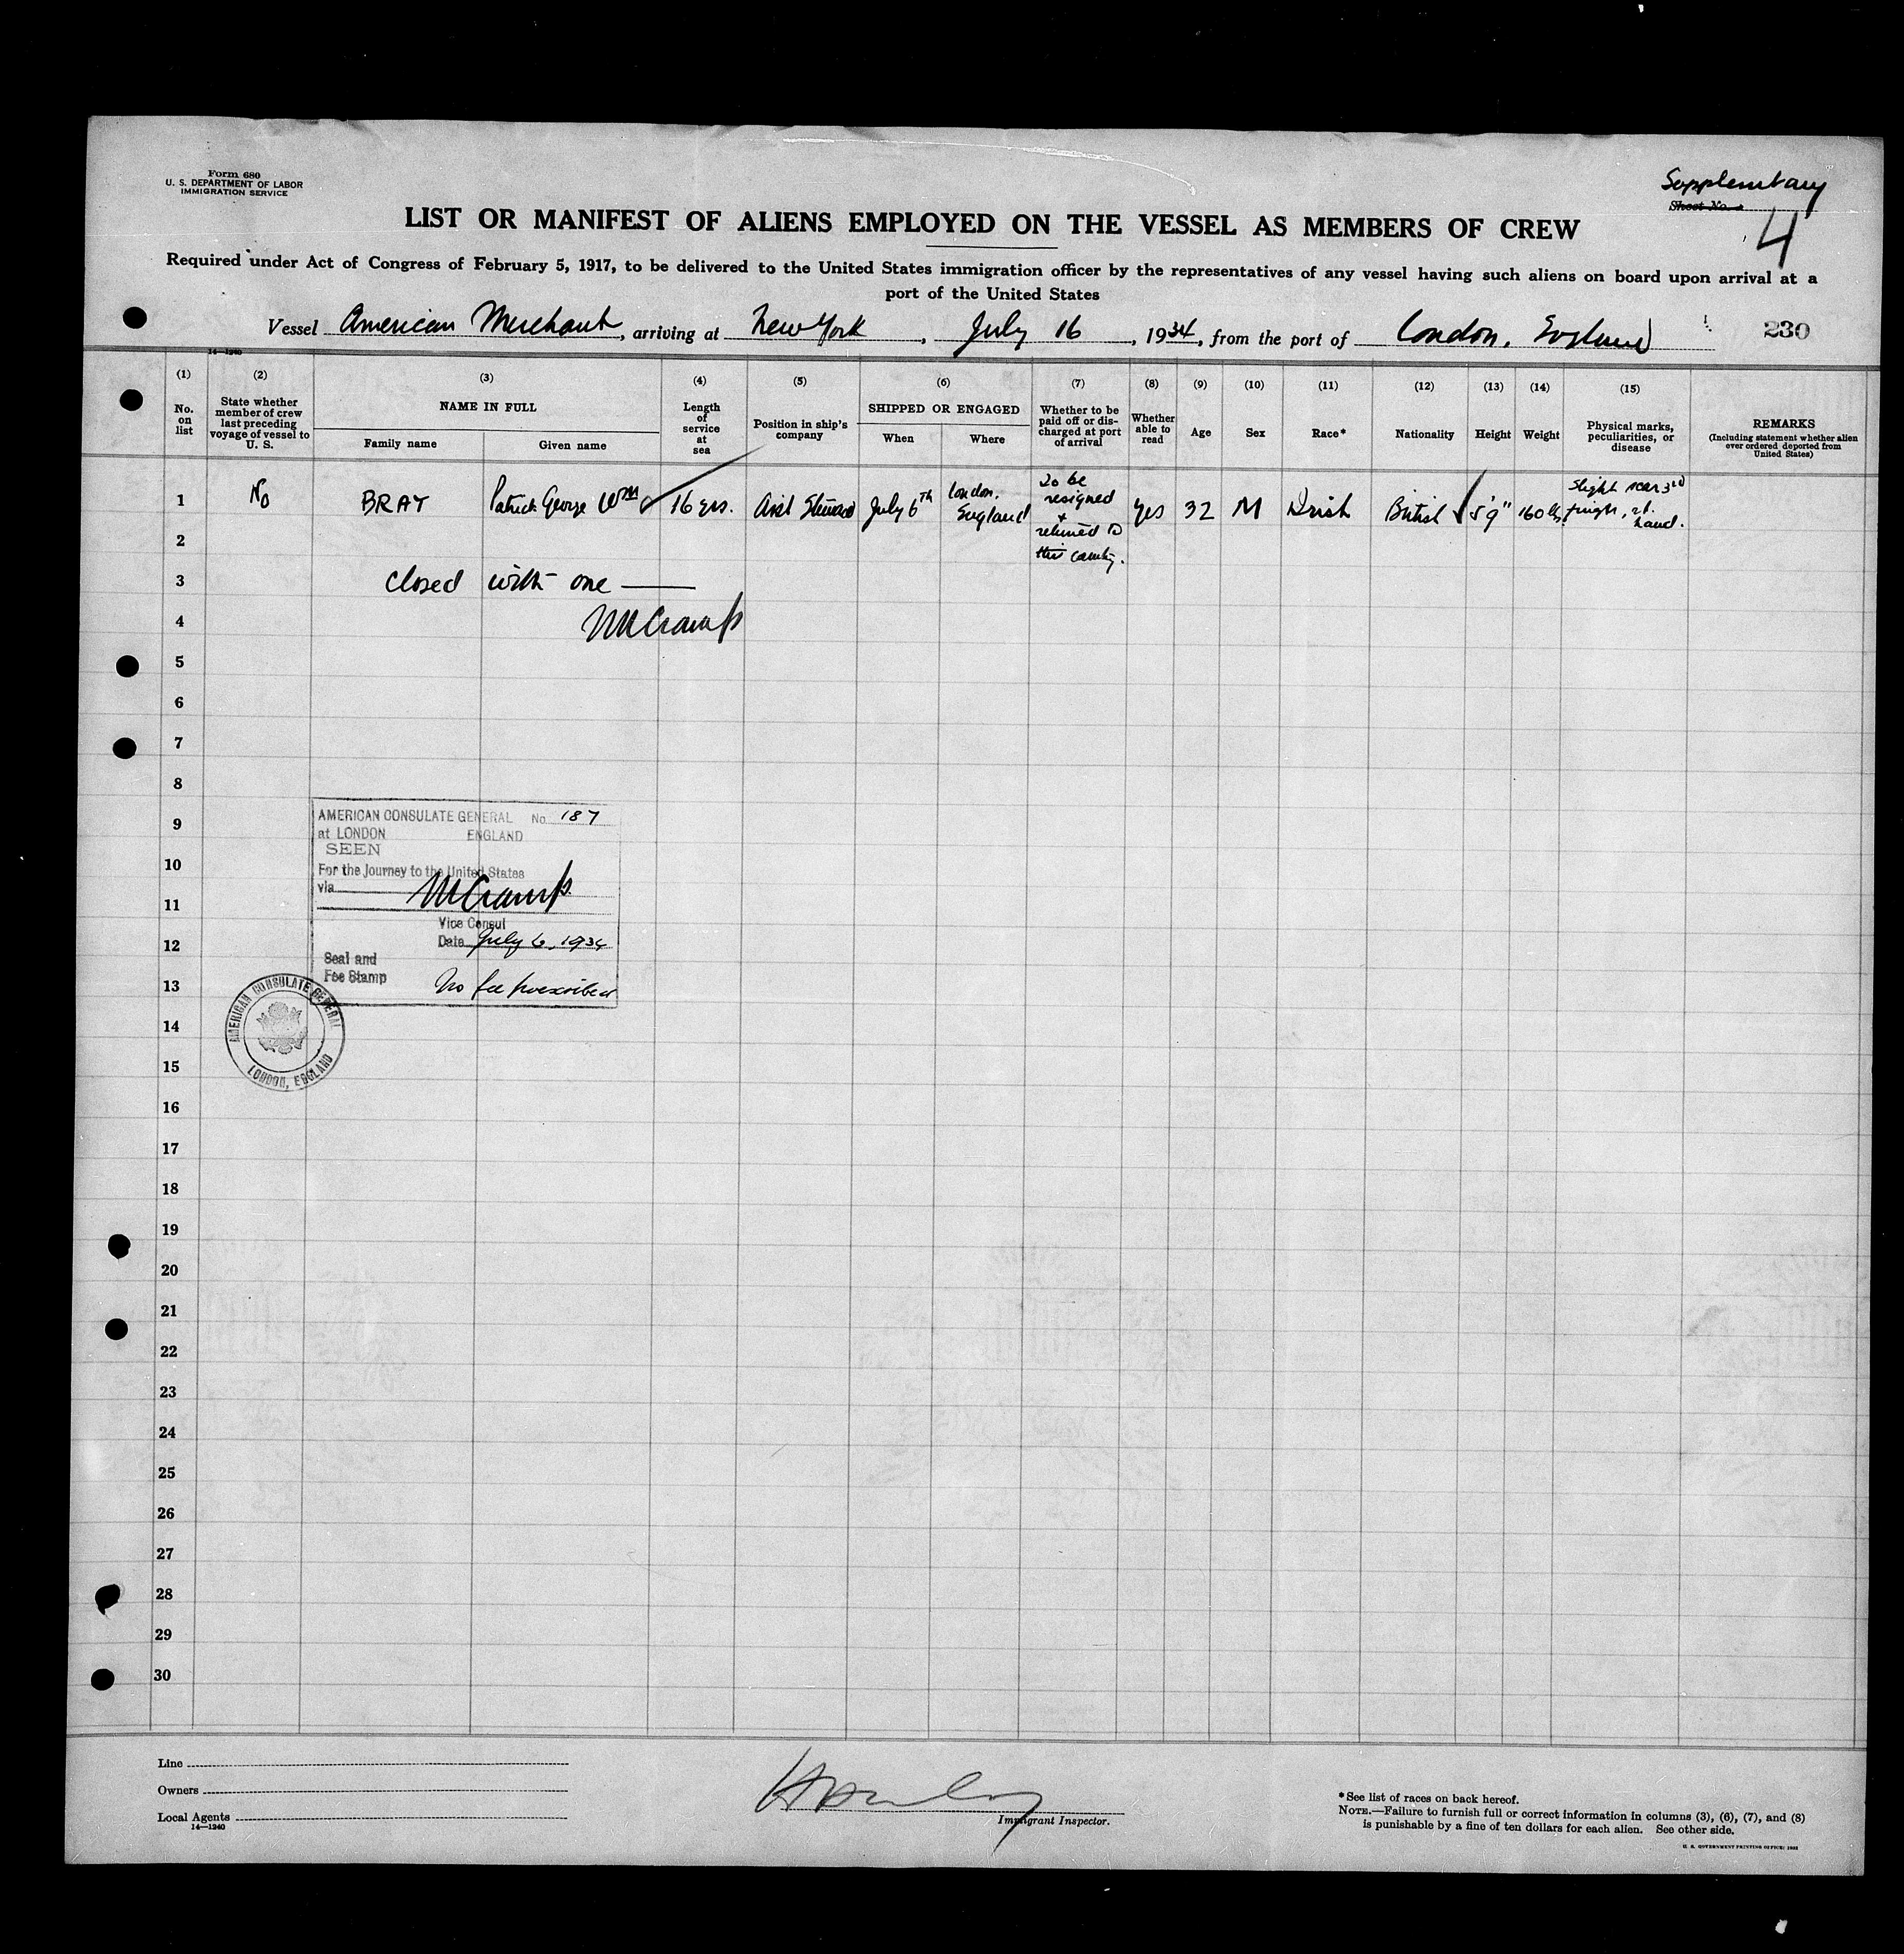 Form 680
U. S. DEPARTMENT OF LABOR
IMMIGRATION SERVICE
Supplementary
Sheet No.
4
LIST OR MANIFEST OF ALIENS EMPLOYED ON THE VESSEL AS MEMBERS OF CREW
Required under Act of Congress of February 5, 1917, to be delivered to the United States immigration officer by the representatives of any vessel having such aliens on board upon arrival at a
port of the United States
Vessel American Merchant, arriving at New York, July 16, 1934, from the port of London, England 230
14—1240
(1) (2) (3) (4) (5) (6) (7) (8) (9) (10) (11) (12) (13) (14) (15)
No. on list
State whether member of crew last preceding voyage of vessel to U. S.
NAME IN FULL
Family name Given name
Length of service at sea
Position in ship's company
SHIPPED OR ENGAGED
When Where
Whether to be paid off or discharged at port of arrival
Whether able to read
Age
Sex
Race*
Nationality
Height
Weight
Physical marks, peculiarities, or disease
REMARKS
(Including statement whether alien ever ordered deported from United States)
1 No BRAY Patrick George Wm 16 yrs. Asst Steward July 6th London, England To be resigned + returned to this country. Yes 32 M Irish British 5'9" 160 lbs. Slight scar 3rd finger, rt. hand.
2
3 Closed with one
4
5
6
7
8
9
10
11
12
13
14
15
16
17
18
19
20
21
22
23
24
25
26
27
28
29
30
AMERICAN CONSULATE GENERAL No. 187
at LONDON ENGLAND
SEEN
For the Journey to the United States
via
Vice Consul
Date July 6, 1934
Seal and
Fee Stamp
No fee prescribed
AMERICAN CONSULATE GENERAL
LONDON, ENGLAND
Line
Owners
Local Agents
14—1240
Immigrant Inspector.
*See list of races on back hereof.
NOTE.—Failure to furnish full or correct information in columns (3), (6), (7), and (8)
is punishable by a fine of ten dollars for each alien. See other side.